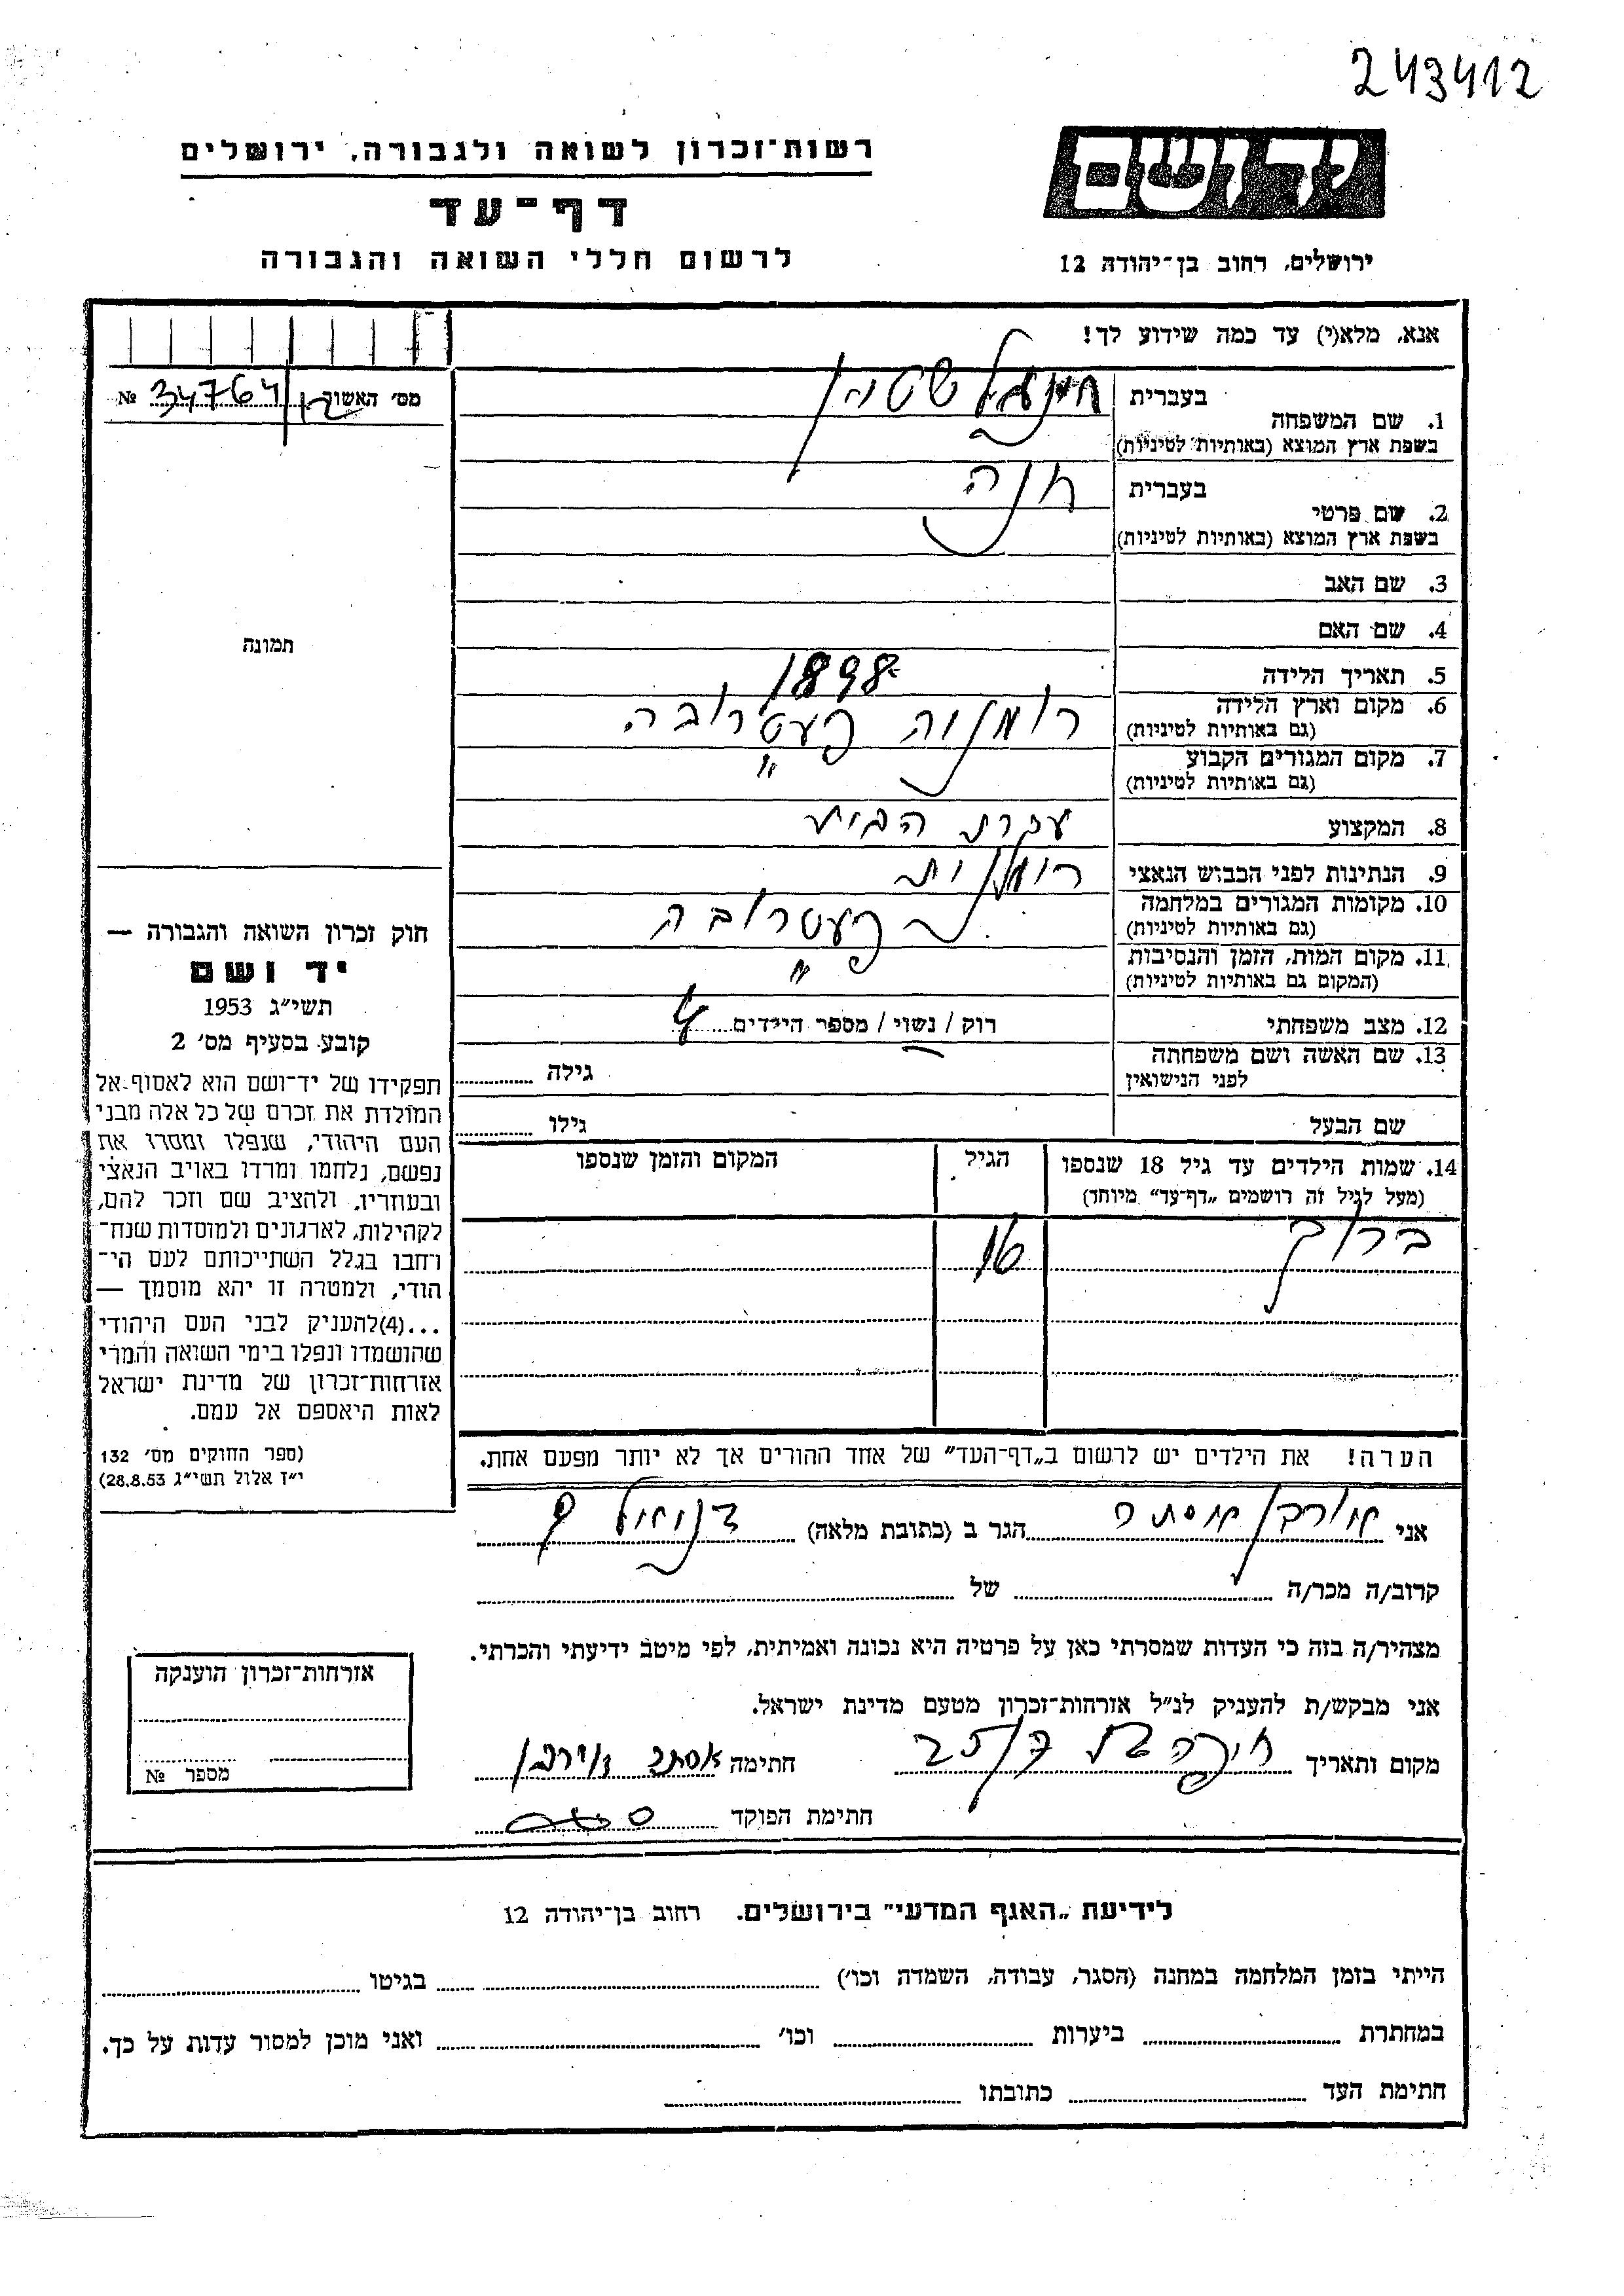 243412
ידושם
ירושלים, רחוב בן־יהודה 12
רשות־זכרון לשואה ולגבורה, ירושלים
דף־עד
לרשום חללי השואה והגבורה
אנא, מלא(י) עד כמה שידוע לך!
מס׳ האשור № 34764
1. שם המשפחה
בעברית
בשפת ארץ המוצא (באותיות לטיניות)
2. שם פרטי
בעברית חנה
בשפת ארץ המוצא (באותיות לטיניות)
3. שם האב
4. שם האם
5. תאריך הלידה 1898
6. מקום וארץ הלידה
(גם באותיות לטיניות)
פעטרובה
7. מקום המגורים הקבוע
(גם באותיות לטיניות)
"
8. המקצוע עקרת הבית
9. הנתינות לפני הכבוש הנאצי
10. מקומות המגורים במלחמה
(גם באותיות לטיניות)
פעטרובה
11. מקום המות, הזמן והנסיבות
(המקום גם באותיות לטיניות)
"
12. מצב משפחתי
רוק / נשוי / מספר הילדים 4
13. שם האשה ושם משפחתה
לפני הנישואין
גילה
שם הבעל
גילו
14. שמות הילדים עד גיל 18 שנספו
(מעל לגיל זה רושמים „דף־עד” מיוחד)
הגיל
המקום והזמן שנספו
ברוך 16
הערה! את הילדים יש לרשום ב„דף־העד” של אחד ההורים אך לא יותר מפעם אחת.
תמונה
חוק זכרון השואה והגבורה —
יד ושם
תשי״ג 1953
קובע בסעיף מס׳ 2
תפקידו של יד־ושם הוא לאסוף אל
המולדת את זכרם של כל אלה מבני
העם היהודי, שנפלו ומסרו את
נפשם, נלחמו ומרדו באויב הנאצי
ובעוזריו, ולהציב שם וזכר להם,
לקהילות, לארגונים ולמוסדות שנח־
רחבו בגלל השתייכותם לעם הי־
הודי, ולמטרה זו יהא מוסמך —
...(4)להעניק לבני העם היהודי
שהושמדו ונפלו בימי השואה והמרי
אזרחות־זכרון של מדינת ישראל
לאות היאספם אל עמם.
(ספר החוקים מס׳ 132
י״ז אלול תשי״ג 28.8.53)
אני אסתר הגר ב (כתובת מלאה)
קרוב/ה מכר/ה של
מצהיר/ה בזה כי העדות שמסרתי כאן על פרטיה היא נכונה ואמיתית, לפי מיטב ידיעתי והכרתי.
אני מבקש/ת להעניק לנ״ל אזרחות־זכרון מטעם מדינת ישראל.
מקום ותאריך חיפה חתימה אסתר
חתימת הפוקד
אזרחות־זכרון הוענקה
מספר №
לידיעת „האגף המדעי” בירושלים, רחוב בן־יהודה 12
הייתי בזמן המלחמה במחנה (הסגר, עבודה, השמדה וכו׳) בגיטו
במחתרת ביערות וכו׳ ואני מוכן למסור עדות על כך.
חתימת העד כתובתו